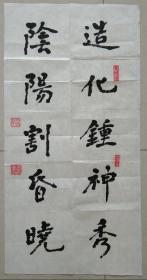 造化鍾神秀
陰陽割昏曉